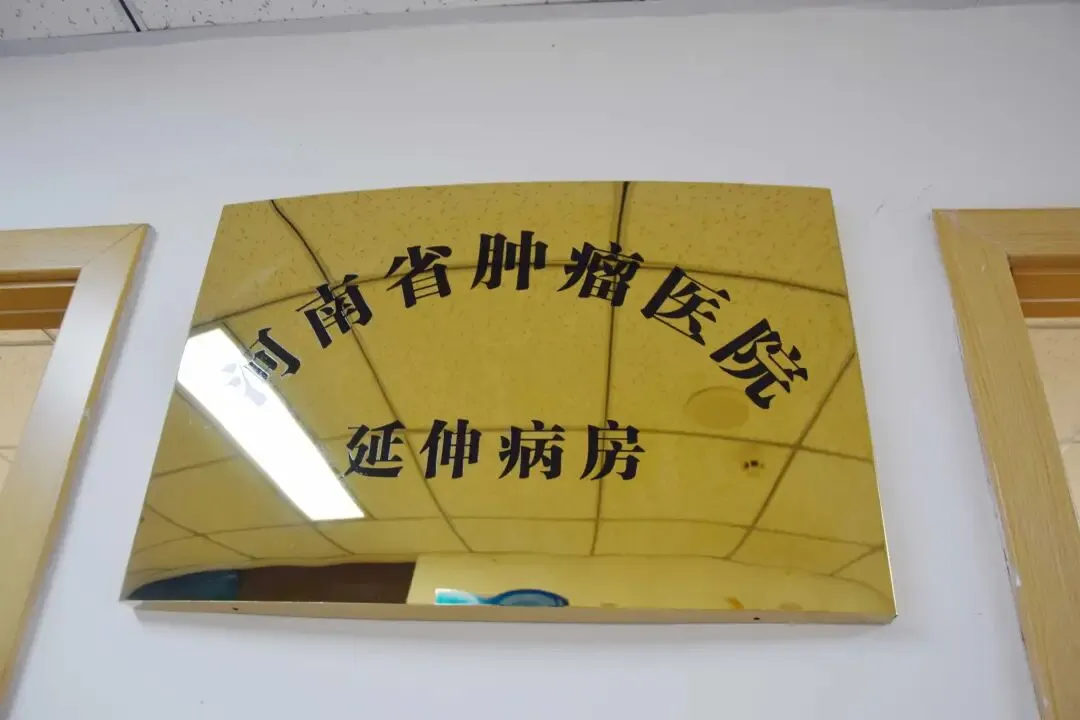 河南省肿瘤医院
延伸病房